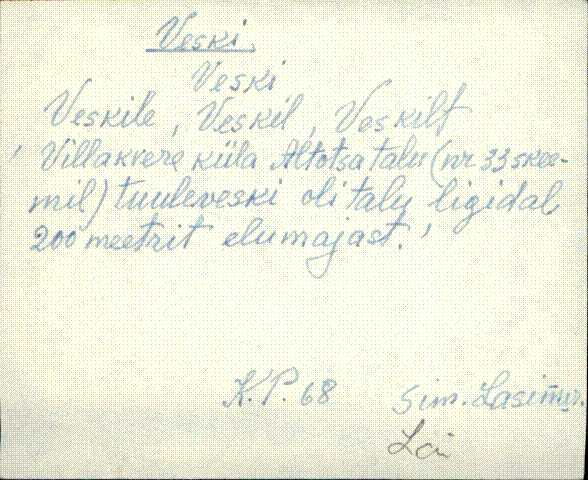 Veski
Veski
Veskile, Veskil, Veskilt
' Villakvere küla Altotsa talu (nr 33 skee-
mil) tuuleveski oli talu ligidal
200 meetrit elumajast. '
K.P. 68 Sim. Lasinur.
Lä